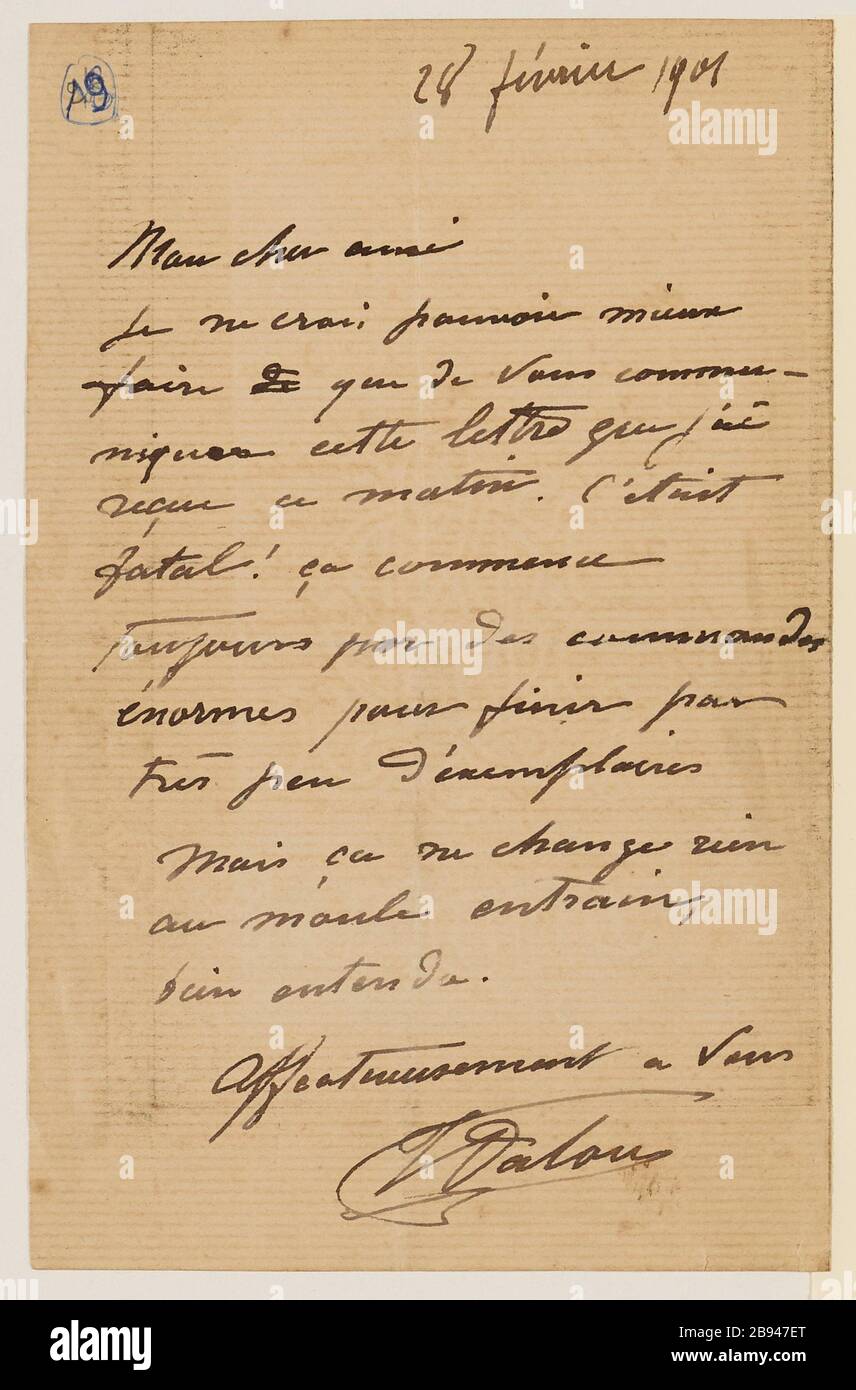 19
28 février 1901
Mon cher ami
Je ne crois pouvoir mieux
faire que de vous commu-
niquer cette lettre que j'ai
reçue ce matin. C'était
fatal! ça commence
toujours par des commandes
énormes pour finir par
très peu d'exemplaires
Mais ça ne change rien
au moule entrain,
bien entendu.
Affectueusement a vous
Dalou
alamy
Image ID: 2B947ET
www.alamy.com